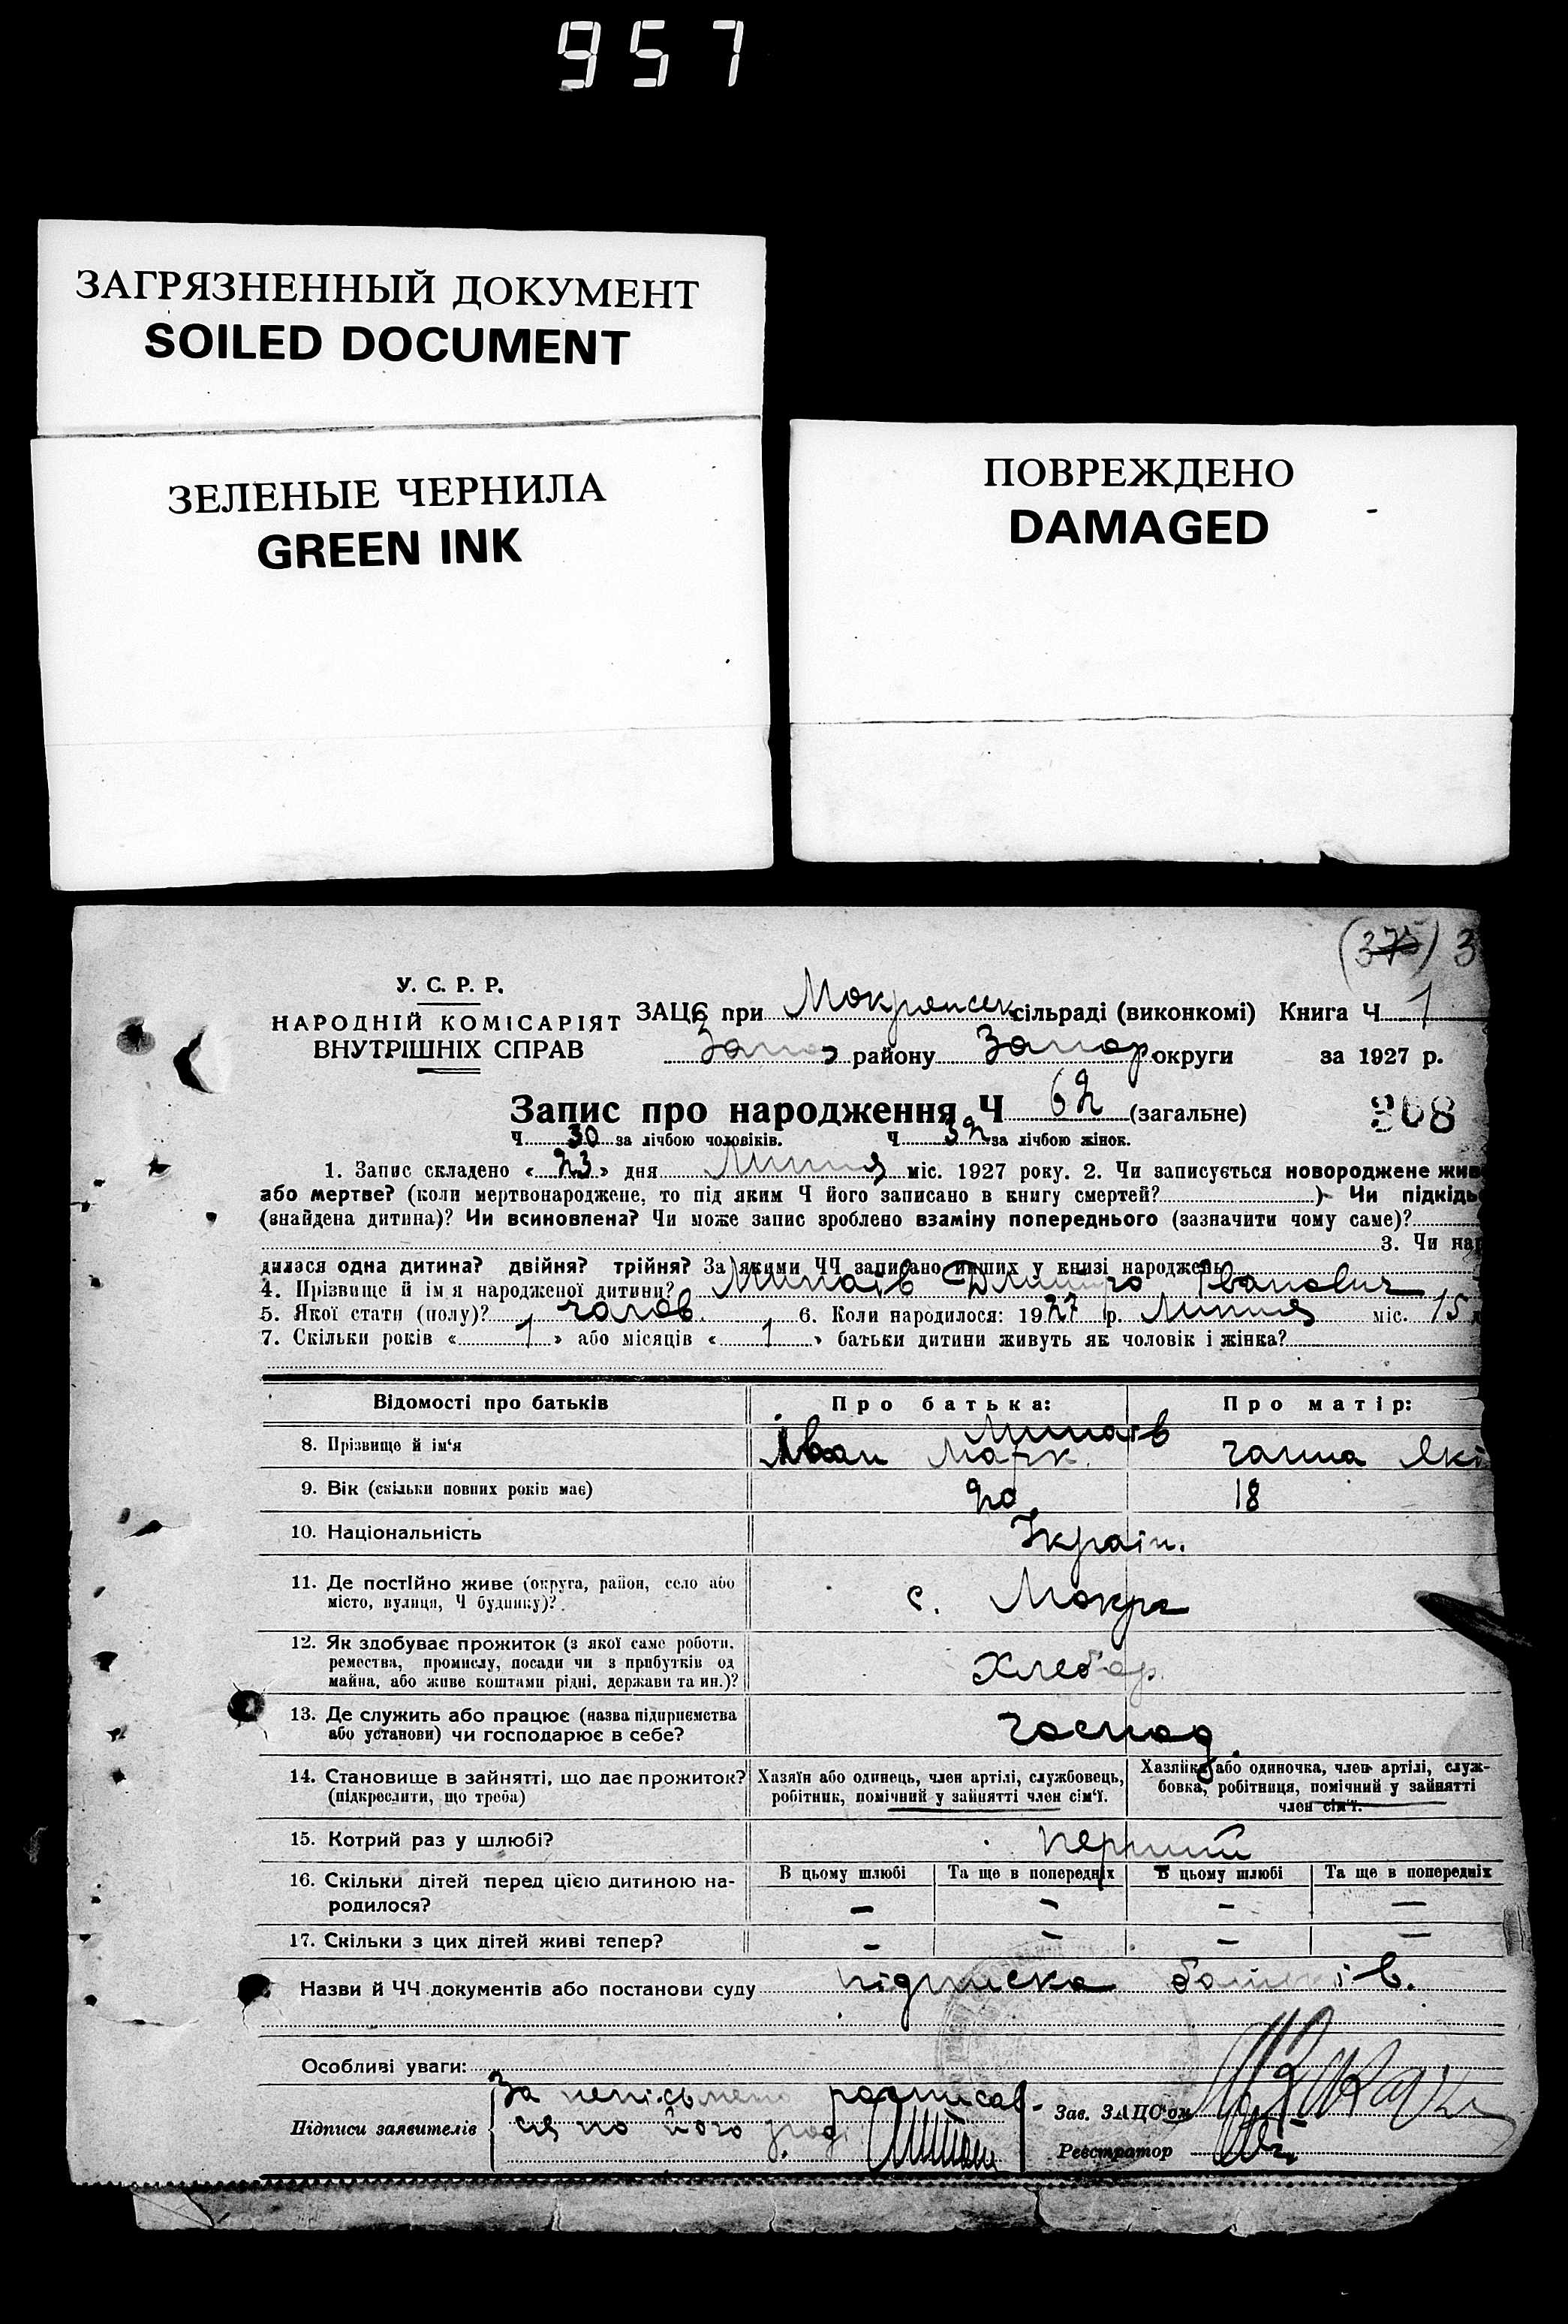 957
ЗАГРЯЗНЕННЫЙ ДОКУМЕНТ
SOILED DOCUMENT
ЗЕЛЕНЫЕ ЧЕРНИЛА
GREEN INK
ПОВРЕЖДЕНО
DAMAGED
(375) 3
У. С. Р. Р.
НАРОДНІЙ КОМІСАРІЯТ
ВНУТРІШНІХ СПРАВ
ЗАЦС при Мокрянськ сільраді (виконкомі) Книга Ч 1
Запо району Запор округи за 1927 р.
Запис про народження Ч 62 (загальне) 368
Ч 30 за лічбою чоловіків. Ч 32 за лічбою жінок.
1. Запис складено «23» дня Липня міс. 1927 року. 2. Чи записується новороджене жив
або мертве? (коли мертвонароджене, то під яким Ч його записано в книгу смертей? ) Чи підкідь
(знайдена дитина)? Чи всиновлена? Чи може запис зроблено взаміну попереднього (зазначити чому саме)?
3. Чи нар
дилася одна дитина? двійня? трійня? За якими ЧЧ записано инших у книзі народжень
4. Прізвище й ім'я народженої дитини? Дмитро Іванович
5. Якої стати (полу)? чолов. 6. Коли народилося: 1927 р. Липня міс. 15 д
7. Скільки років «1» або місяців «1» батьки дитини живуть як чоловік і жінка?
Відомості про батьків Про батька: Про матір:
8. Прізвище й ім'я Іван Марк. Ганна Які
9. Вік (скільки повних років має) 20 18
10. Національність Україн.
11. Де постійно живе (округа, район, село або
місто, вулиця, Ч будинку)? с. Мокра
12. Як здобуває прожиток (з якої саме роботи,
ремества, промислу, посади чи з прибутків од
майна, або живе коштами рідні, держави та ин.)? Хлебор.
13. Де служить або працює (назва підприємства
або установи) чи господарює в себе? господ.
14. Становище в зайнятті, що дає прожиток?
(підкреслити, що треба)
Хазяїн або одинець, член артілі, службовець,
робітник, помічний у зайнятті член сім'ї.
Хазяйка або одиночка, член артілі, служ-
бовка, робітниця, помічний у зайнятті
член сім'ї.
15. Котрий раз у шлюбі? перший
16. Скільки дітей перед цією дитиною на-
родилося?
В цьому шлюбі Та ще в попередніх В цьому шлюбі Та ще в попередніх
— — — —
17. Скільки з цих дітей живі тепер? — — — —
Назви й ЧЧ документів або постанови суду підписка батьків.
Особливі уваги:
Підписи заявителів За непісьмено росписав-
ся по його
Зав. ЗАЦС'ом
Реєстратор